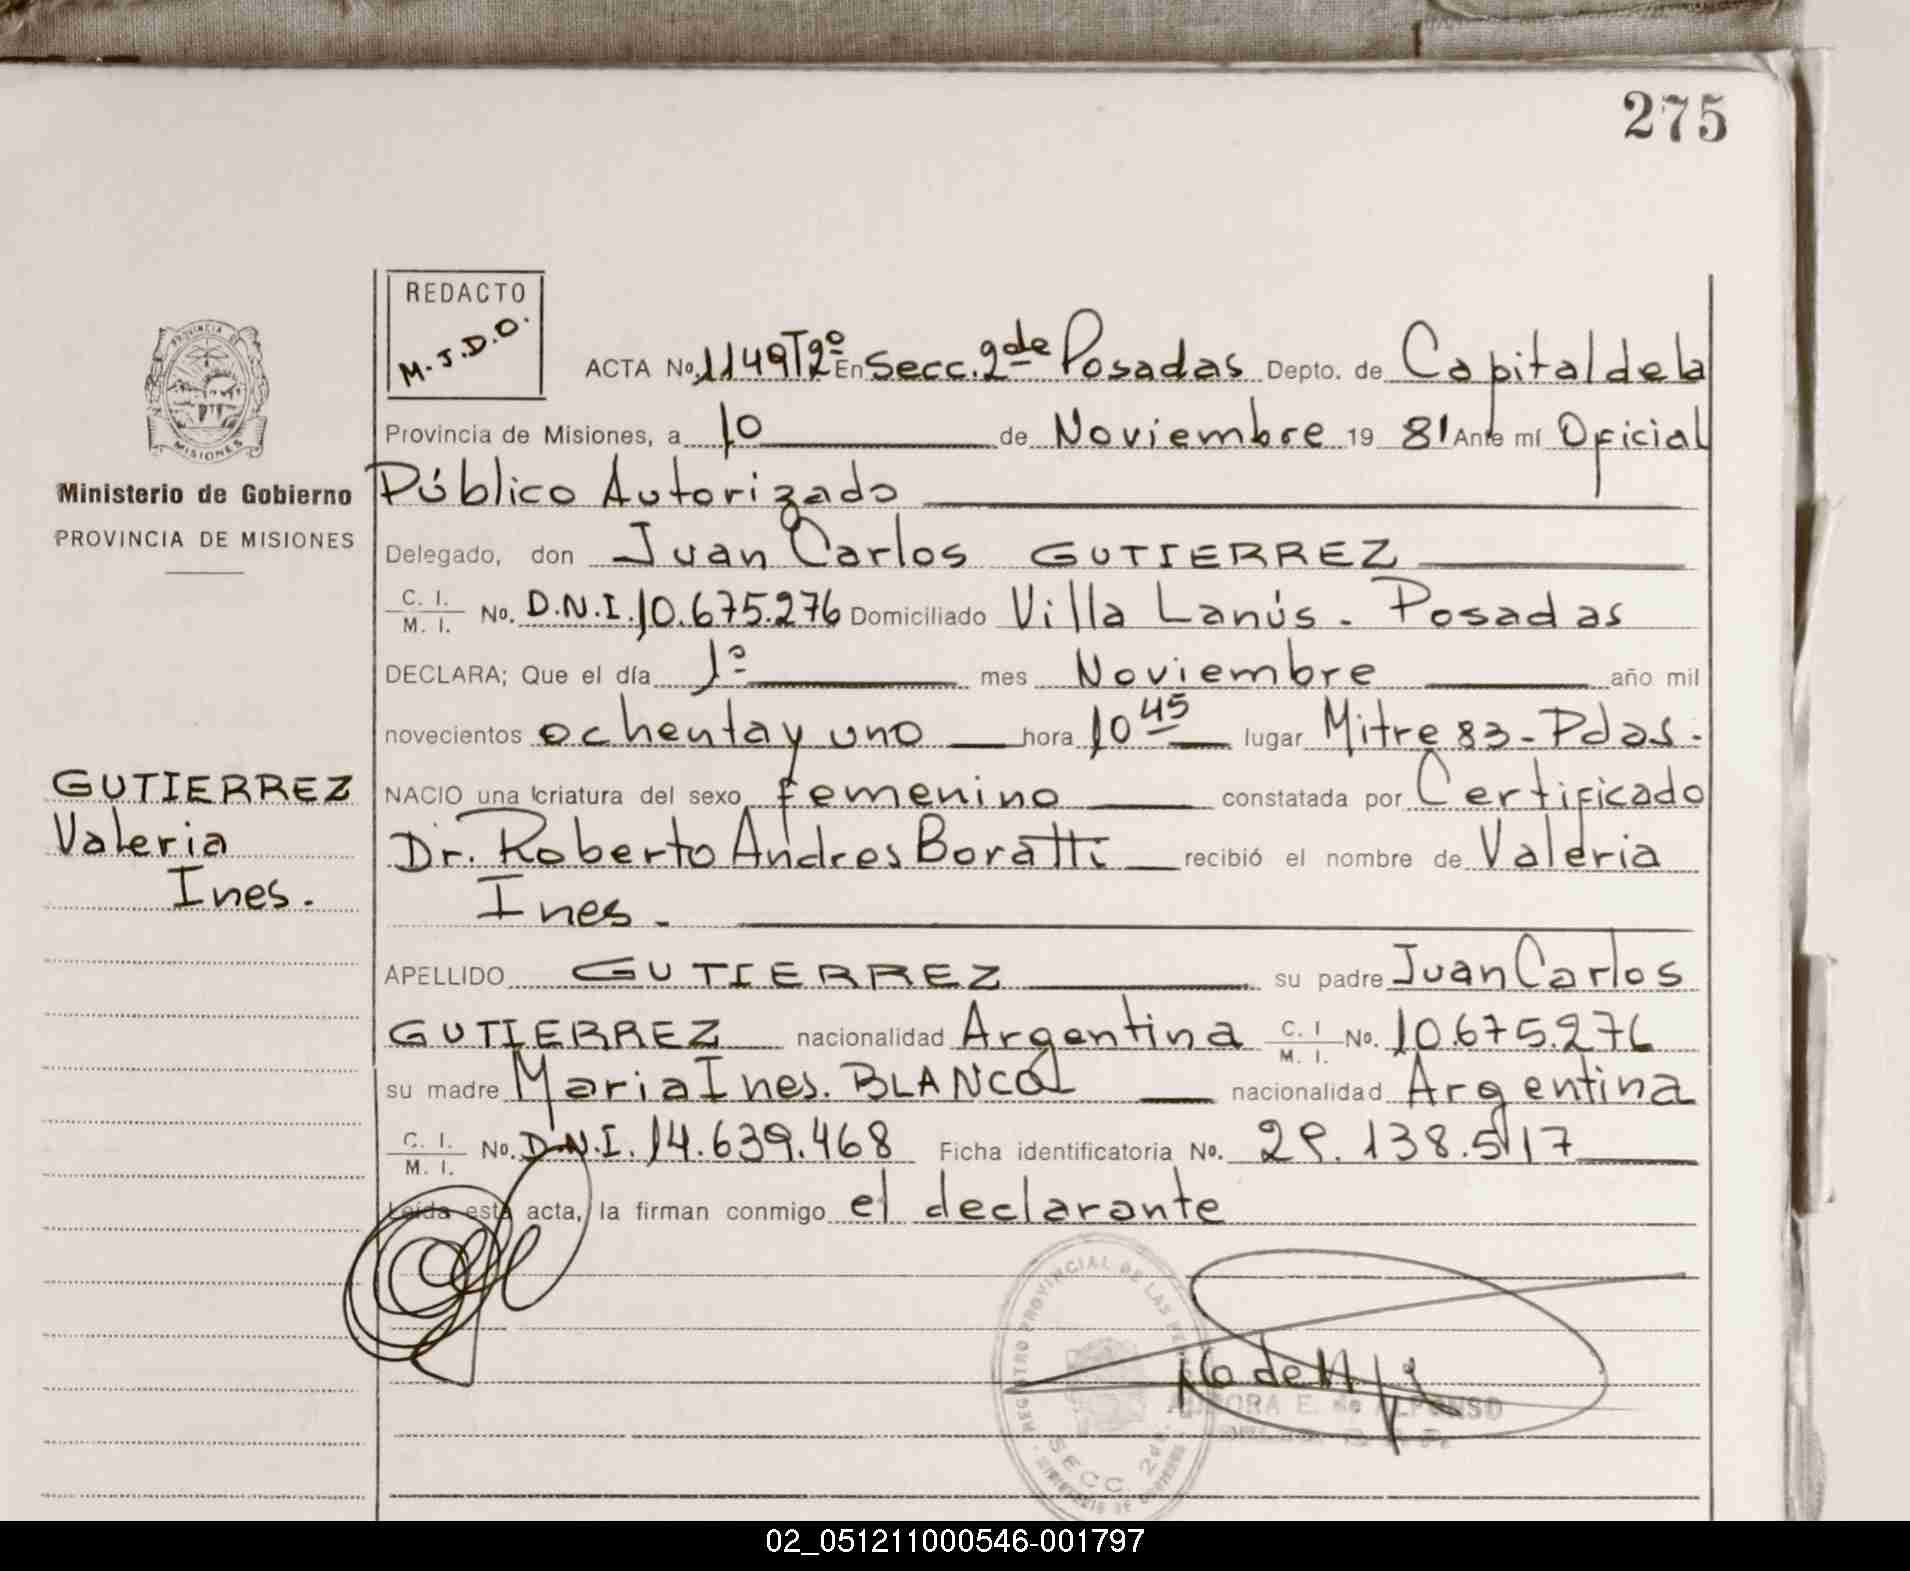 275
REDACTO
M.J.D.O.
ACTA No. 1149T2º En Secc. 2da Posadas Depto. de Capital de la
Provincia de Misiones, a 10 de Noviembre 19 81 Ante mí Oficial
Público Autorizado
Delegado, don Juan Carlos GUTIERREZ
C. I. / M. I. No. D.N.I. 10.675.276 Domiciliado Villa Lanús - Posadas
DECLARA; Que el día 1º mes Noviembre año mil
novecientos ochenta y uno hora 10 45 lugar Mitre 83 - Pdas.
NACIO una criatura del sexo femenino constatada por Certificado
Dr. Roberto Andres Boratti recibió el nombre de Valeria
Ines.
APELLIDO GUTIERREZ su padre Juan Carlos
GUTIERREZ nacionalidad Argentina C. I / M. I. No. 10.675.276
su madre Maria Ines. BLANCO nacionalidad Argentina
C. I. / M. I. No. D.N.I. 14.639.468 Ficha identificatoria No. 29.138.517
Leída esta acta, la firman conmigo el declarante
PROVINCIA DE
MISIONES
Ministerio de Gobierno
PROVINCIA DE MISIONES
GUTIERREZ
Valeria
Ines.
REGISTRO PROVINCIAL DE LAS
SECC 2da.
AURORA E. de ALFONSO
02_051211000546-001797